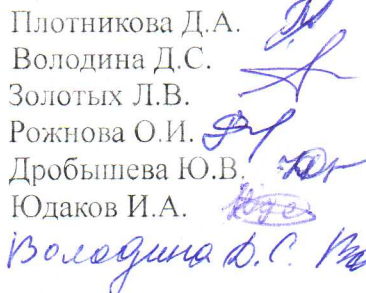 Плотникова Д.А.
Володина Д.С.
Золотых Л.В.
Рожнова О.И.
Дробышева Ю.В.
Юдаков И.А.
Володина Д.С.